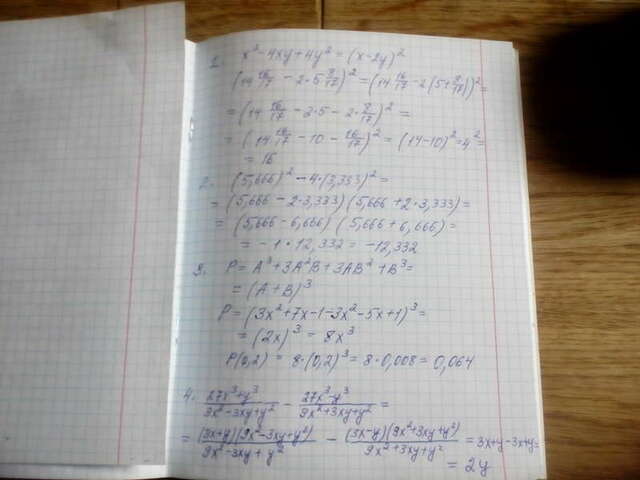 1. x² - 4xy + 4y² = (x - 2y)²
(14 16/17 - 2·5 8/17)² = (14 16/17 - 2(5 + 8/17))² =
= (14 16/17 - 2·5 - 2·8/17)² =
= (14 16/17 - 10 - 16/17)² = (14 - 10)² = 4² =
= 16
2. (5,666)² - 4·(3,333)² =
= (5,666 - 2·3,333)(5,666 + 2·3,333) =
= (5,666 - 6,666)(5,666 + 6,666) =
= -1·12,332 = -12,332
3. P = A³ + 3A²B + 3AB² + B³ =
= (A + B)³
P = (3x² + 7x - 1 - 3x² - 5x + 1)³ =
= (2x)³ = 8x³
P(0,2) = 8·(0,2)³ = 8·0,008 = 0,064
4. (27x³ + y³)/(9x² - 3xy + y²) - (27x³ - y³)/(9x² + 3xy + y²) =
= (3x + y)(9x² - 3xy + y²)/(9x² - 3xy + y²) - (3x - y)(9x² + 3xy + y²)/(9x² + 3xy + y²) = 3x + y - 3x + y =
= 2y